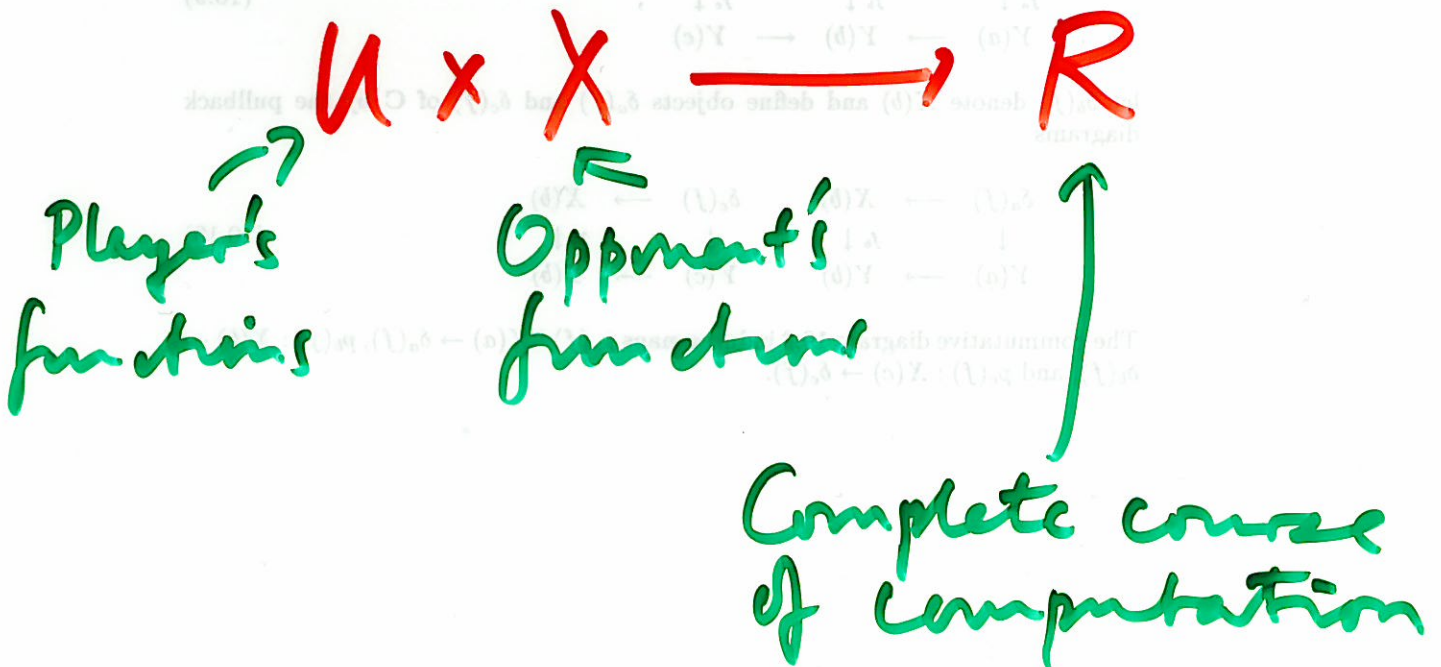 U × X → R
Player's functions
Opponent's functions
Complete course
of computation